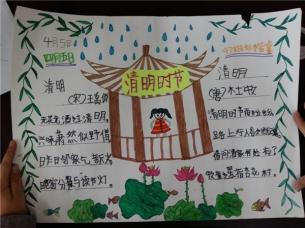 4月5日
四月五日
清明时节
清明
(宋)王禹偁
无花无酒过清明，
兴味萧然似野僧
昨日邻家乞新火
晓窗分与读书灯。
清明
(唐)杜牧
清明时节雨纷纷
路上行人欲断魂
借问酒家何处有
牧童遥指杏花村。